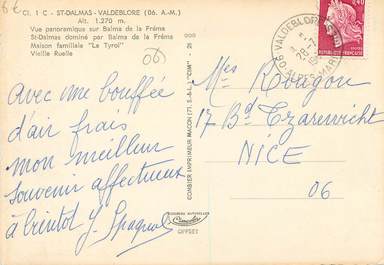 6€
Cl. 1 C - ST-DALMAS - VALDEBLORE (06. A.-M.)
Alt. 1.270 m.
Vue panoramique sur Balma de la Fréma
St-Dalmas dominé par Balma de la Fréma
Maison familiale "Le Tyrol"
Vieille Ruelle
06
Avec une bouffée
d'air frais
mon meilleur
souvenir affectueux
à bientôt J. Spagnol
COMBIER IMPRIMEUR MACON (71. S.-&-L.) "CIM"
OFFSET
VALDEBLORE
06 ALPES-MARITIMES
0,40
REPUBLIQUE FRANCAISE
Mes Rougon
17 Bd Tzarewicht
NICE
06